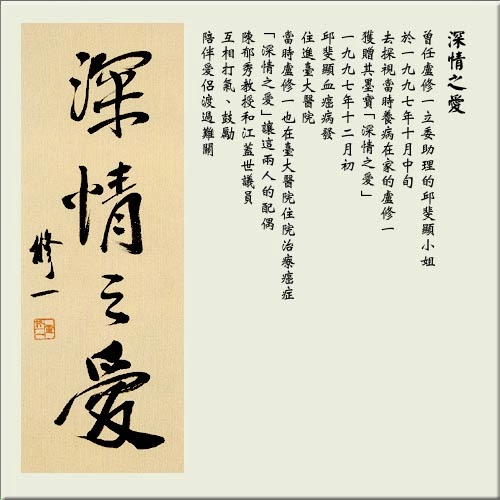 深情之愛
曾任盧修一立委助理的邱斐顯小姐
於一九九七年十月中旬
去探視當時養病在家的盧修一
獲贈其墨寶「深情之愛」
一九九七年十二月初
邱斐顯血癌病發
住進臺大醫院
當時盧修一也在臺大醫院住院治療癌症
「深情之愛」讓這兩人的配偶
陳郁秀教授和江蓋世議員
互相打氣、鼓勵
陪伴愛侶渡過難關
深情之愛
修一